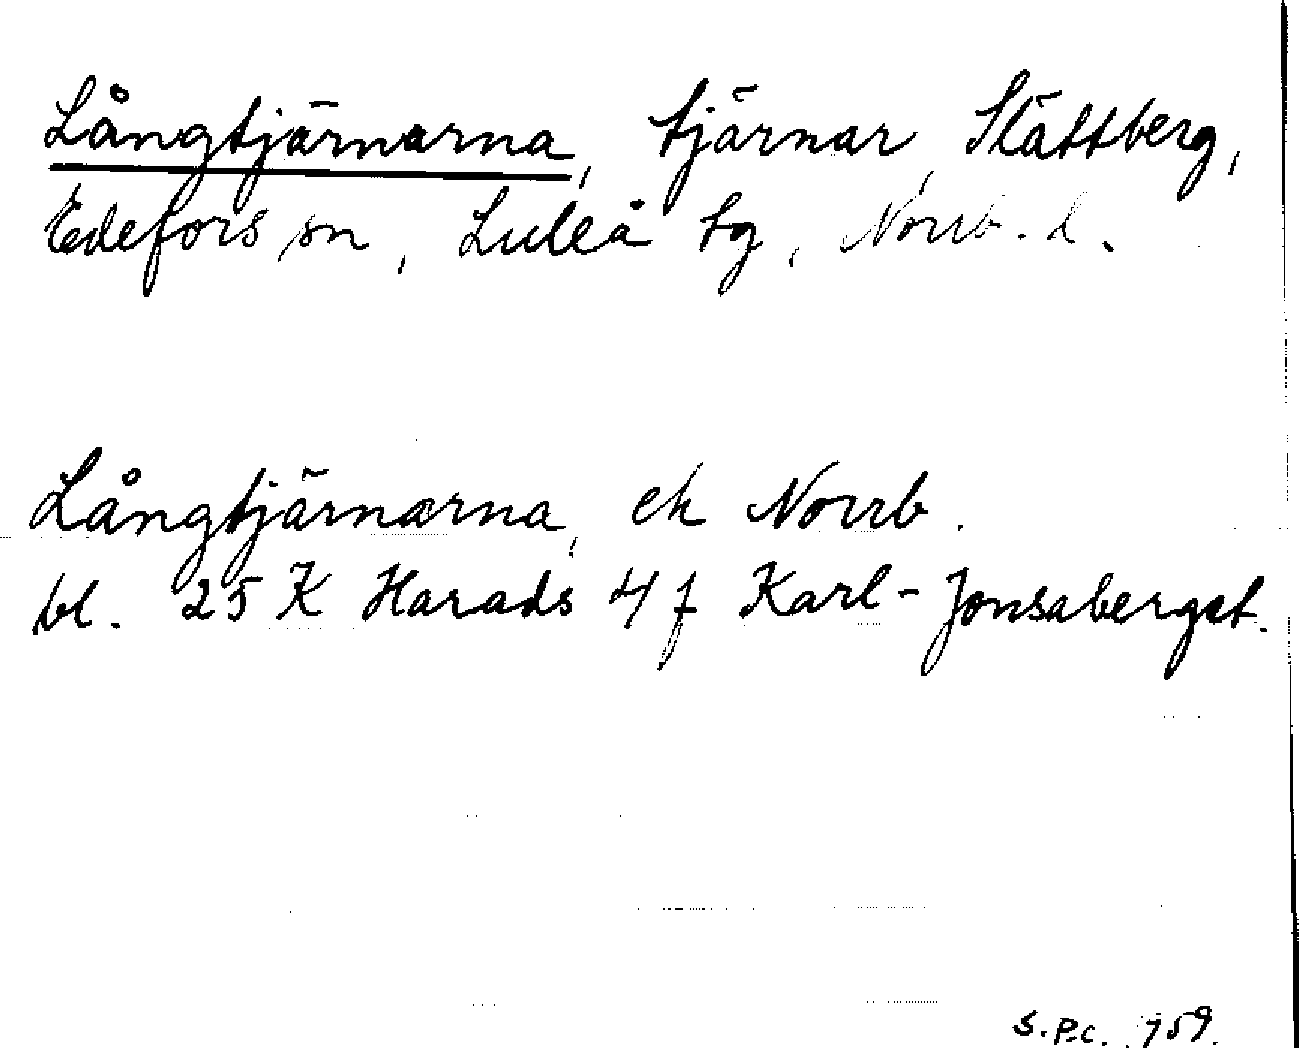 Långtjärnarna, tjärnar, Slättberg,
Edefors sn, Luleå tg, Norrb. l.
Långtjärnarna, ek Norrb.
bl. 25 K Harads 4 f Karl-Jonsaberget.
S.P.C. 759.